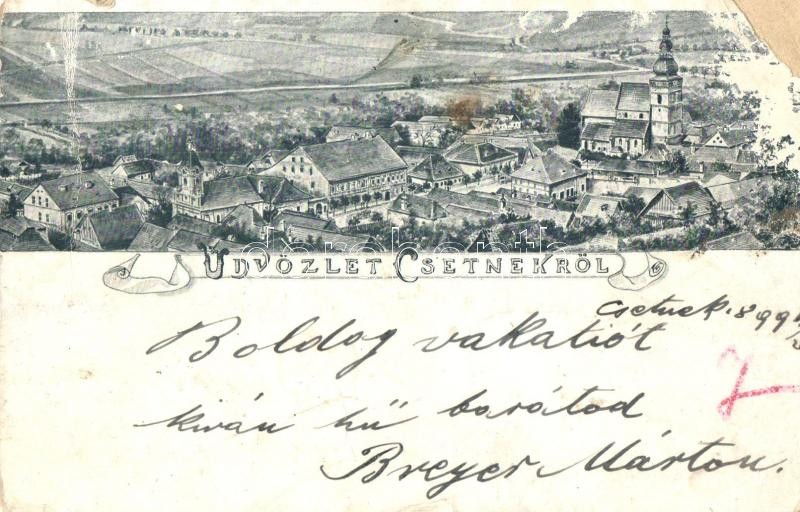 darabanth.com
ÜDVÖZLET CSETNEKRŐL
Csetnek. 899
Boldog vakatiót
kiván hű barátod
Breyer Márton.